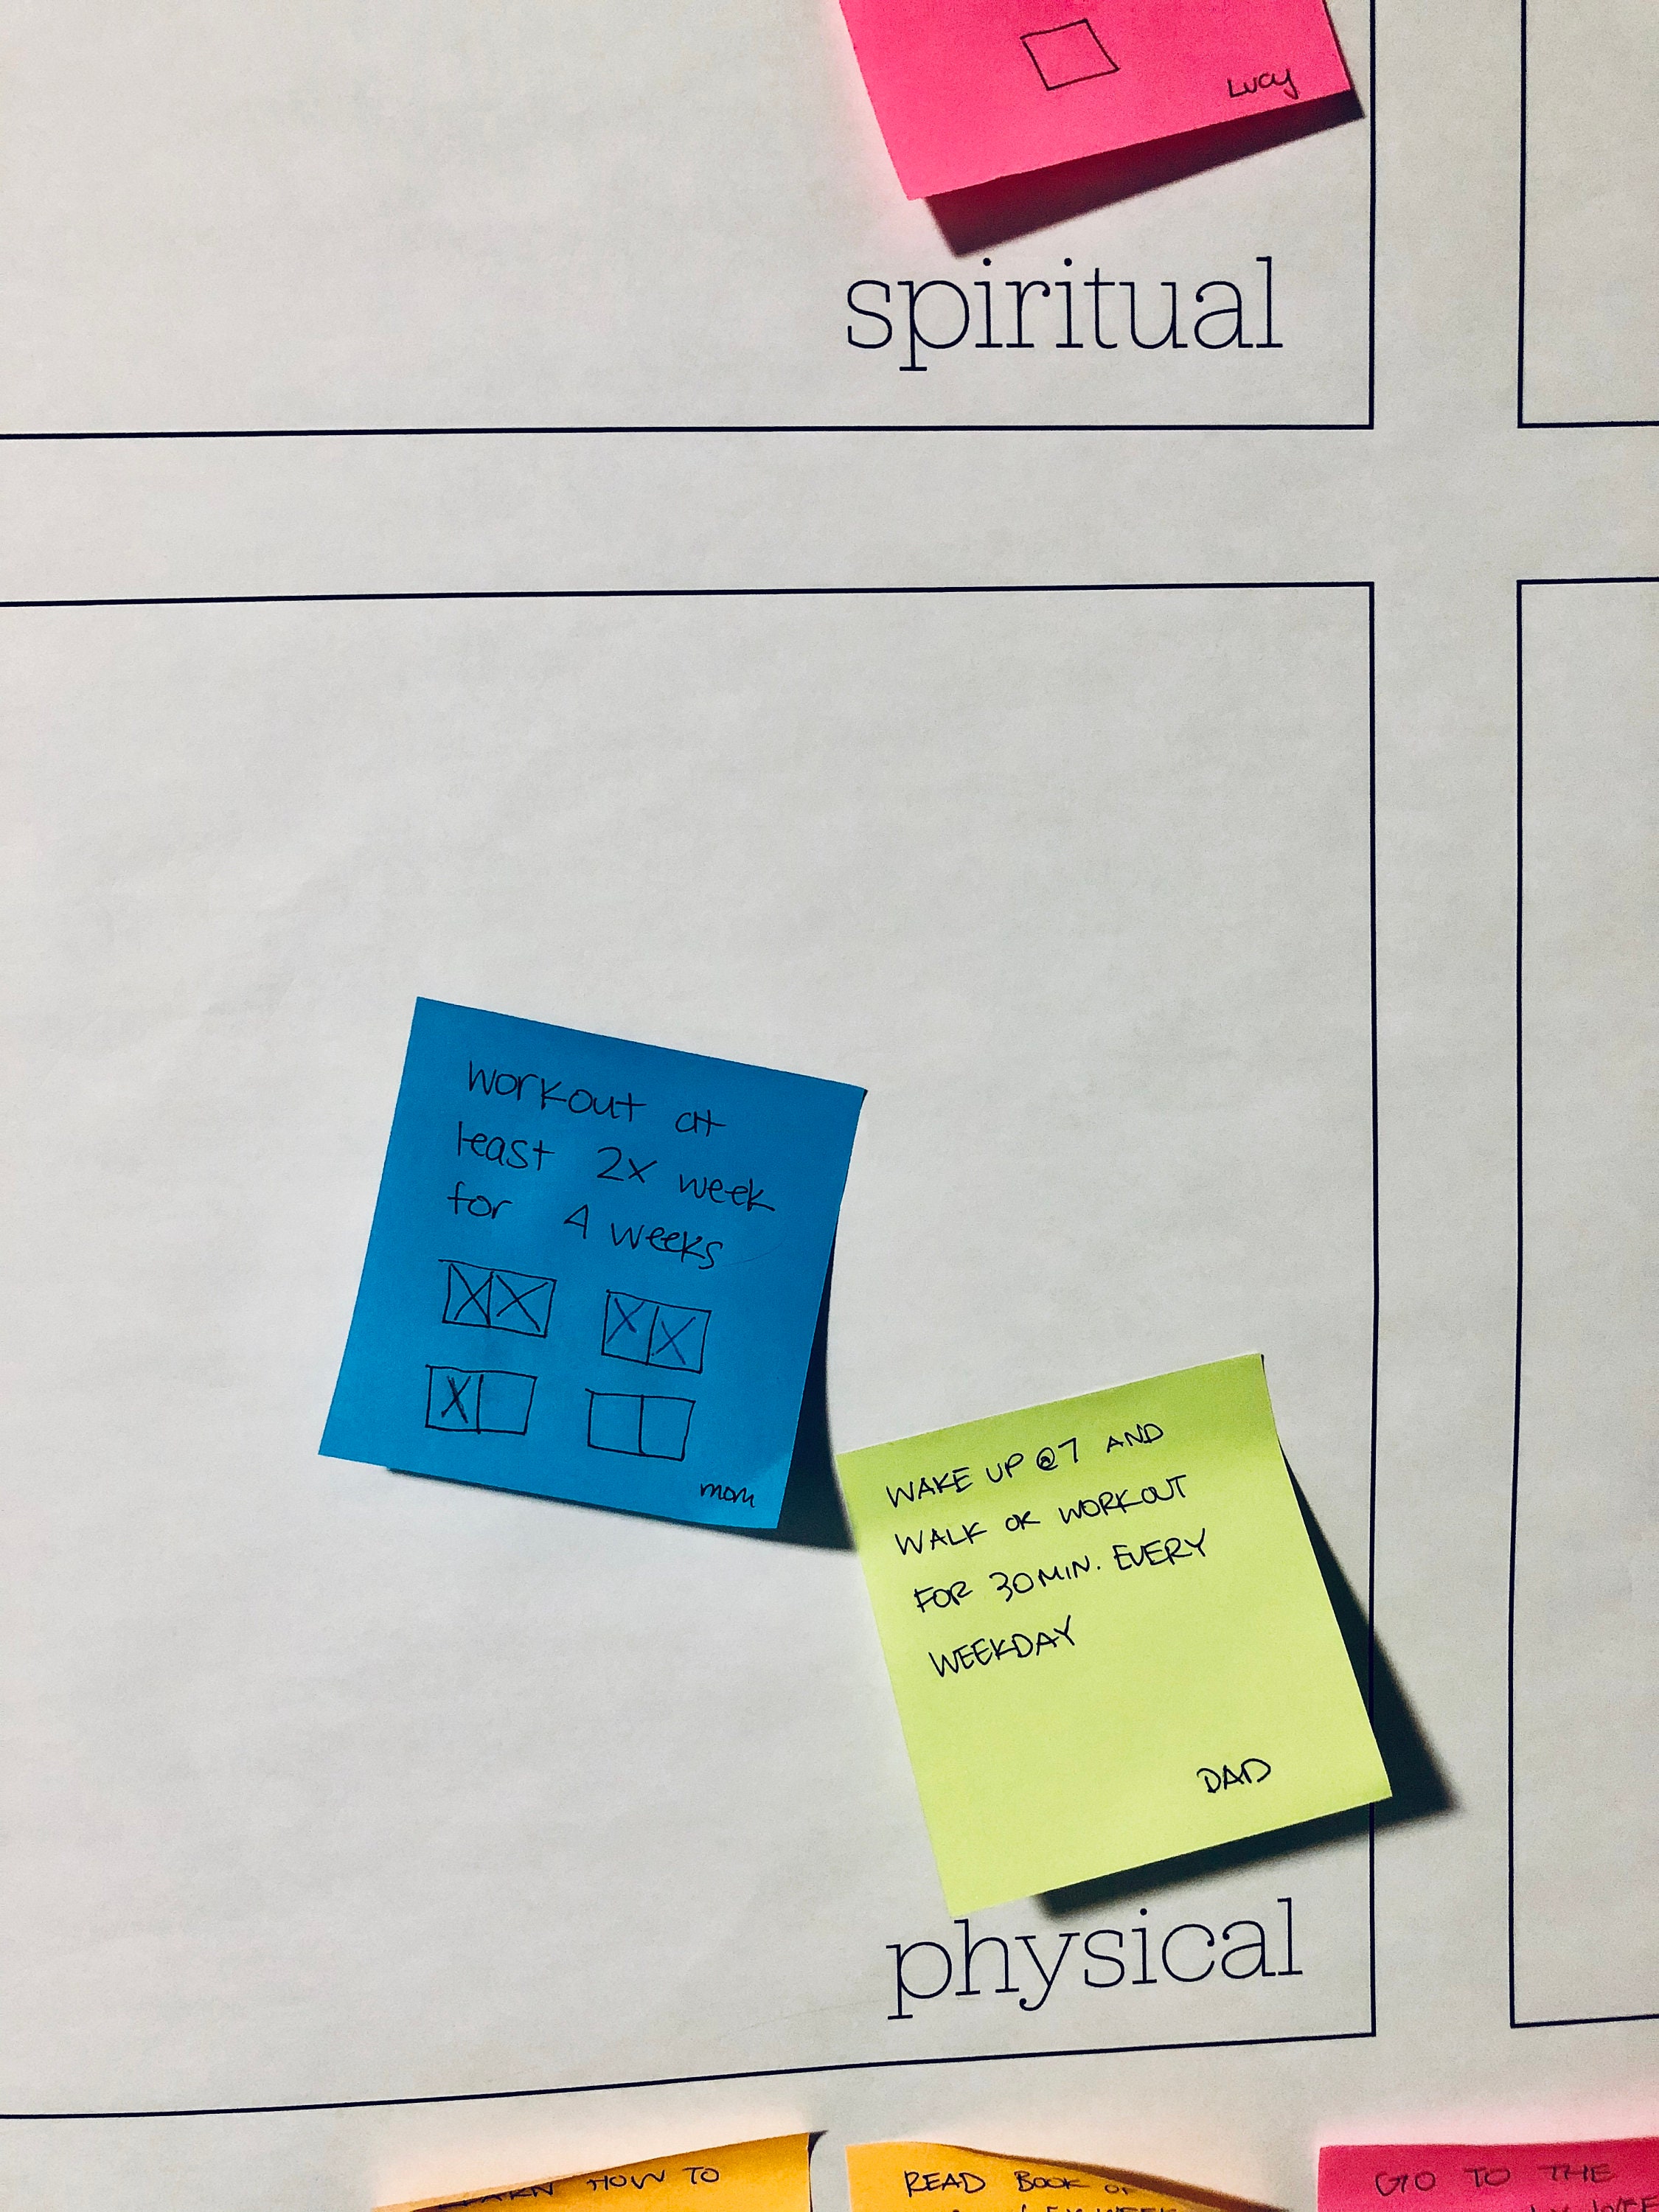 Lucy
spiritual
workout at
least 2x week
for 4 weeks
mom
WAKE UP @7 AND
WALK OR WORKOUT
FOR 30MIN. EVERY
WEEKDAY
DAD
physical
LEARN HOW TO
READ BOOK OF
GO TO THE